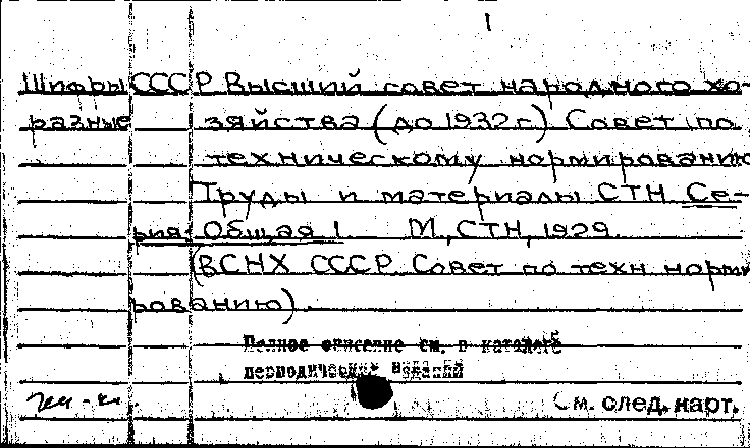 1
Шифры СССР Высший совет народного хо-
разные зяйства (до 1932 г.) Совет по
техническому нормированию
Труды и материалы СТН Се-
рия: Общая 1 М., СТН, 1929.
(ВСНХ СССР. Совет по техн норми
рованию).
Полное описание см. в каталоге
периодических изданий
См. след. карт.